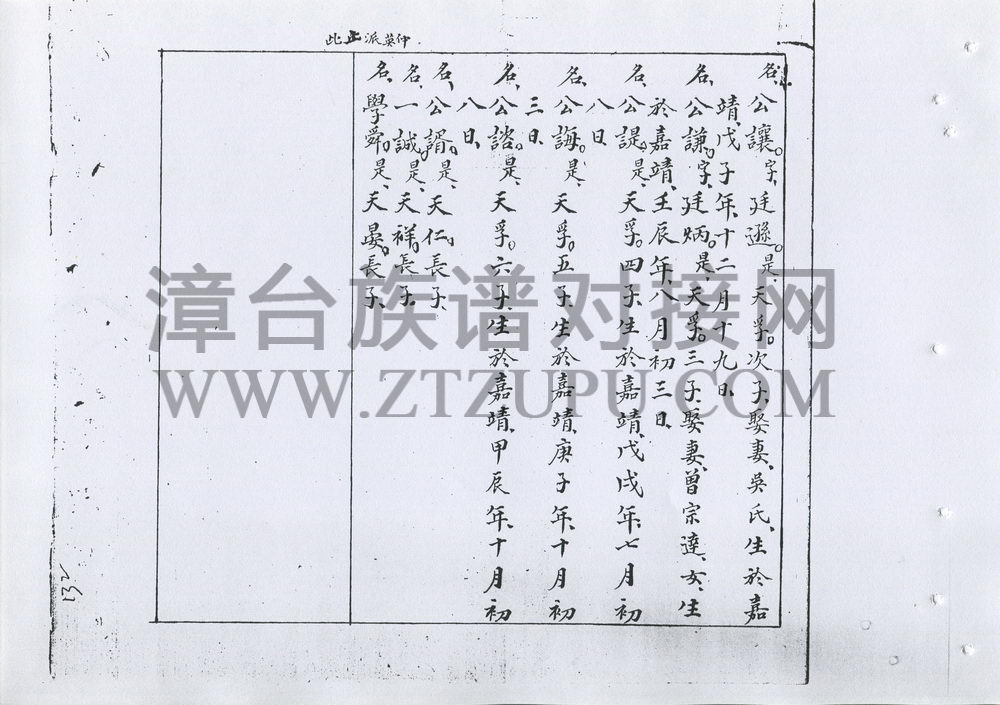 仲英派止此
名、公讓。字、廷遜。是、天孚。次子、娶妻、吳氏、生於嘉
靖、戊子年、十二月十九日、
名、公謙。字、廷炳。是、天孚。三子、娶妻、曾宗達、女、生
於嘉靖、壬辰年、八月初三日、
名、公諟。是、天孚。四子、生於嘉靖、戊戌年、七月初
八日、
名、公誨。是、天孚。五子、生於嘉靖、庚子年、十月初
三日、
名、公諮。是、天孚。六子、生於嘉靖、甲辰年、十月初
八日、
名、公諝。是、天仁。長子、
名、一誠。是、天祥。長子、
名、學舜。是、天晏。長子、
132
漳台族谱对接网
WWW.ZTZUPU.COM